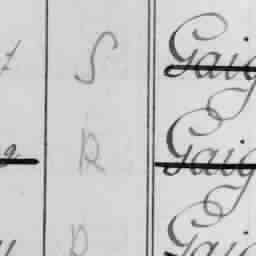 S Gaig
R Gaig
R Gaig